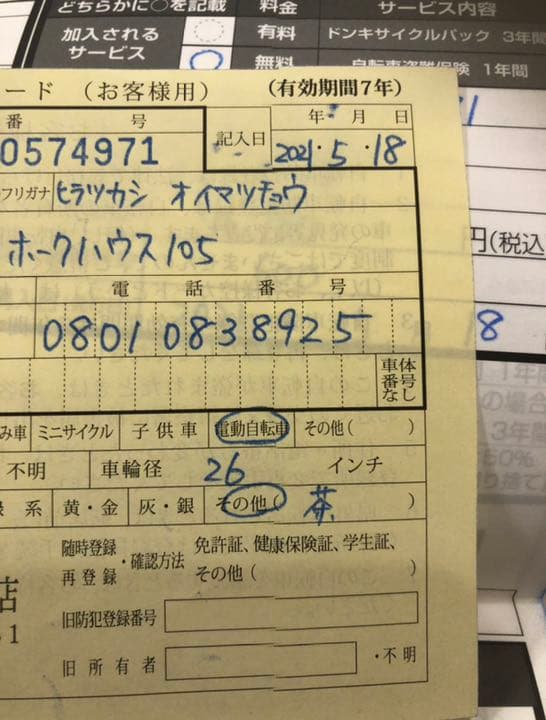 どちらかに○を記載 料金 サービス内容
加入される 有料 ドンキサイクルパック 3年間
サービス 無料 自転車盗難保険 1年間
ード (お客様用) (有効期間7年)
番 号 記入日 年 月 日
0574971 2021・5・18
フリガナ ヒラツカシ オイマツチョウ
ホークハウス105
円(税込
電 話 番 号
08010838925
8
車体
番号
なし
み車 ミニサイクル 子供車 電動自転車 その他( )
不明 車輪径 26 インチ
系 黄・金 灰・銀 その他( 茶 )
随時登録
再登録 ・確認方法 免許証、健康保険証、学生証、
その他( )
店
1
旧防犯登録番号
旧所有者 ・不明
1年間
の場合
3年間
50%